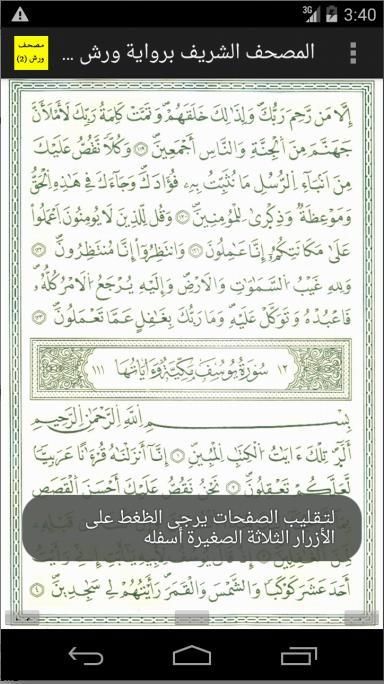 3G 3:40
مصحف
ورش (2)
المصحف الشريف برواية ورش ...
إِلَّا مَن رَّحِمَ رَبُّكَ وَلِذَٰلِكَ خَلَقَهُمْ وَتَمَّتْ كَلِمَةُ رَبِّكَ لَأَمْلَأَنَّ
جَهَنَّمَ مِنَ اَلْجِنَّةِ وَالنَّاسِ أَجْمَعِينَ ١١٩ وَكُلّاً نَّقُصُّ عَلَيْكَ
مِنَ اَنۢبَآءِ اِلرُّسُلِ مَا نُثَبِّتُ بِهِۦ فُؤَادَكَ وَجَآءَكَ فِے هَٰذِهِ اِلْحَقُّ
وَمَوْعِظَةٌ وَذِكْرَىٰ لِلْمُؤْمِنِينَ ١٢٠ وَقُل لِّلذِينَ لَا يُومِنُونَ اَعْمَلُواْ
عَلَىٰ مَكَانَتِكُمُۥٓ إِنَّا عَٰمِلُونَ ١٢١ وَانتَظِرُوٓاْ إِنَّا مُنتَظِرُونَ ١٢٢
وَلِلهِ غَيْبُ اُلسَّمَٰوَٰتِ وَالَارْضِ وَإِلَيْهِ يَرْجِعُ اُلَامْرُ كُلُّهُۥ
فَاعْبُدْهُ وَتَوَكَّلْ عَلَيْهِ وَمَا رَبُّكَ بِغَٰفِلٍ عَمَّا تَعْمَلُونَ ١٢٣
١٢ سُورَةُ يُوسُفَ مَكِّيَّةٌ وَءَايَاتُهَا ١١١
بِسْمِ اِللَّهِ اِلرَّحْمَٰنِ اِلرَّحِيمِ
أَلَٓرۖ تِلْكَ ءَايَٰتُ اُلْكِتَٰبِ اِلْمُبِينِ ١ إِنَّآ أَنزَلْنَٰهُ قُرْءَٰناً عَرَبِيّاً
لَّعَلَّكُمْ تَعْقِلُونَ ٢ نَحْنُ نَقُصُّ عَلَيْكَ أَحْسَنَ اَلْقَصَصِ
لتقليب الصفحات يرجى الظغط على
الأزرار الثلاثة الصغيرة أسفله
أَحَدَ عَشَرَ كَوْكَباً وَالشَّمْسَ وَالْقَمَرَ رَأَيْتُهُمْ لِے سَٰجِدِينَ ٤